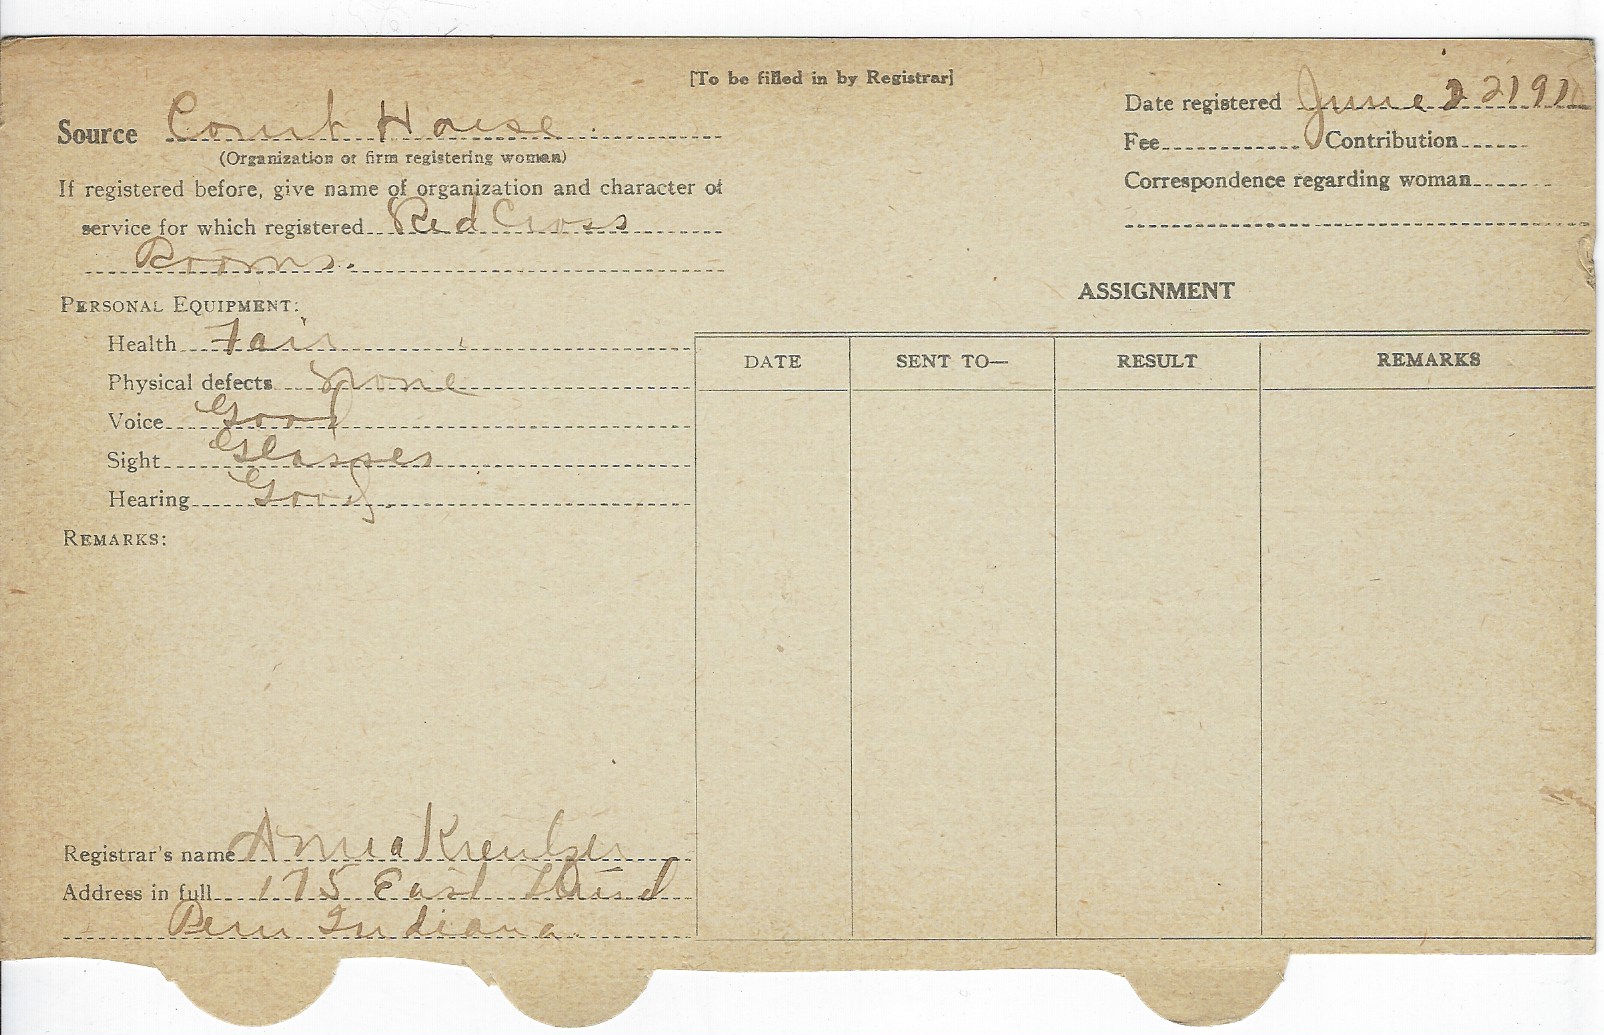 [To be filled in by Registrar]
Source Court House
(Organization or firm registering woman)
If registered before, give name of organization and character of
service for which registered Red Cross
Rooms.
Date registered June 2 191
Fee Contribution
Correspondence regarding woman
PERSONAL EQUIPMENT:
Health Fair
Physical defects None
Voice Good
Sight Glasses
Hearing Good.
REMARKS:
ASSIGNMENT
DATE SENT TO— RESULT REMARKS
Registrar's name Anna Kreutzer
Address in full 175 East Third
Peru Indiana.